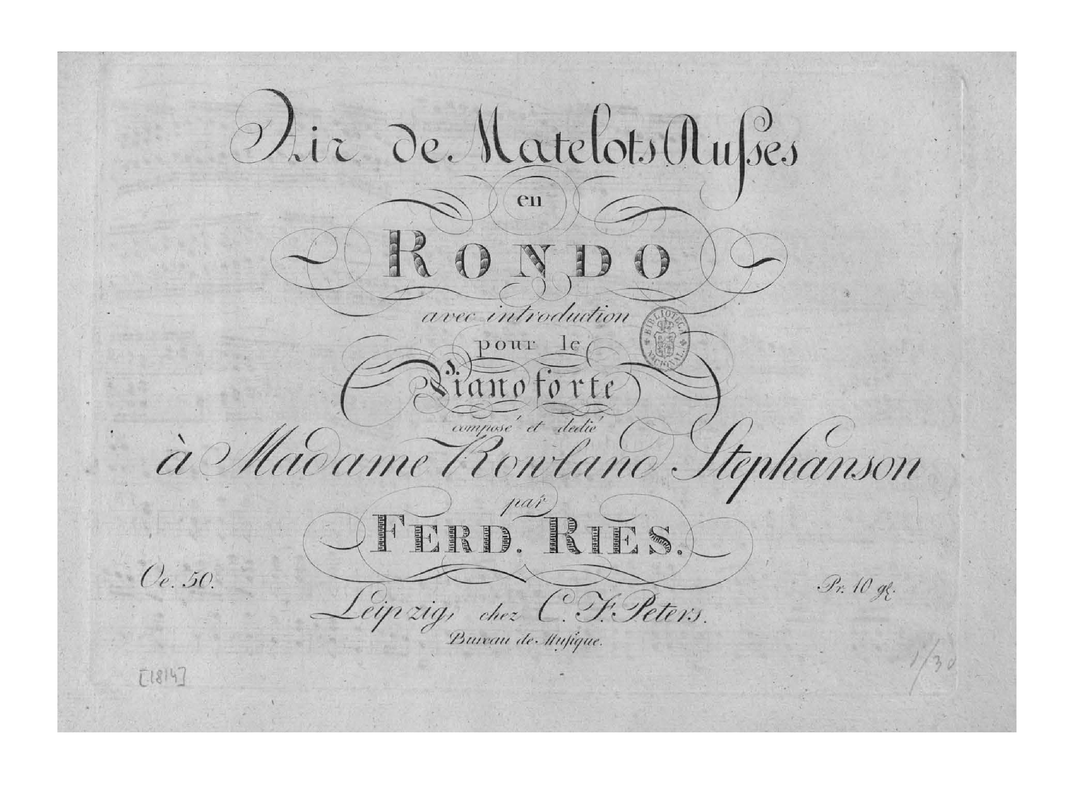 Air de Matelots Ruſses
en
RONDO
avec introduction
pour le
Pianoforte
composé et dedié
à Madame Rowland Stephanson
par
FERD. RIES.
Oe. 50.
Pr. 10 gr.
Leipzig, chez C. F. Peters.
Bureau de Muſique.
[1814]
1/30
BIBLIOTECA NACIONAL